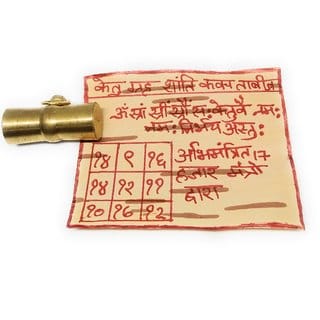 केतु ग्रह शांति कवच ताबीज
ॐ स्रां स्रीं स्रौं स: केतुवै नम:
नम: अस्तु:
१४ ९ १६
११
१० १२
अभिमंत्रित 17
हजार मंत्रो
द्वारा